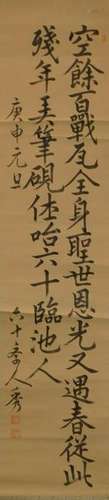 空餘百戰瓦全身聖世恩光又遇春從此
殘年弄筆硯休咍六十臨池人
庚申元旦
六十人秀